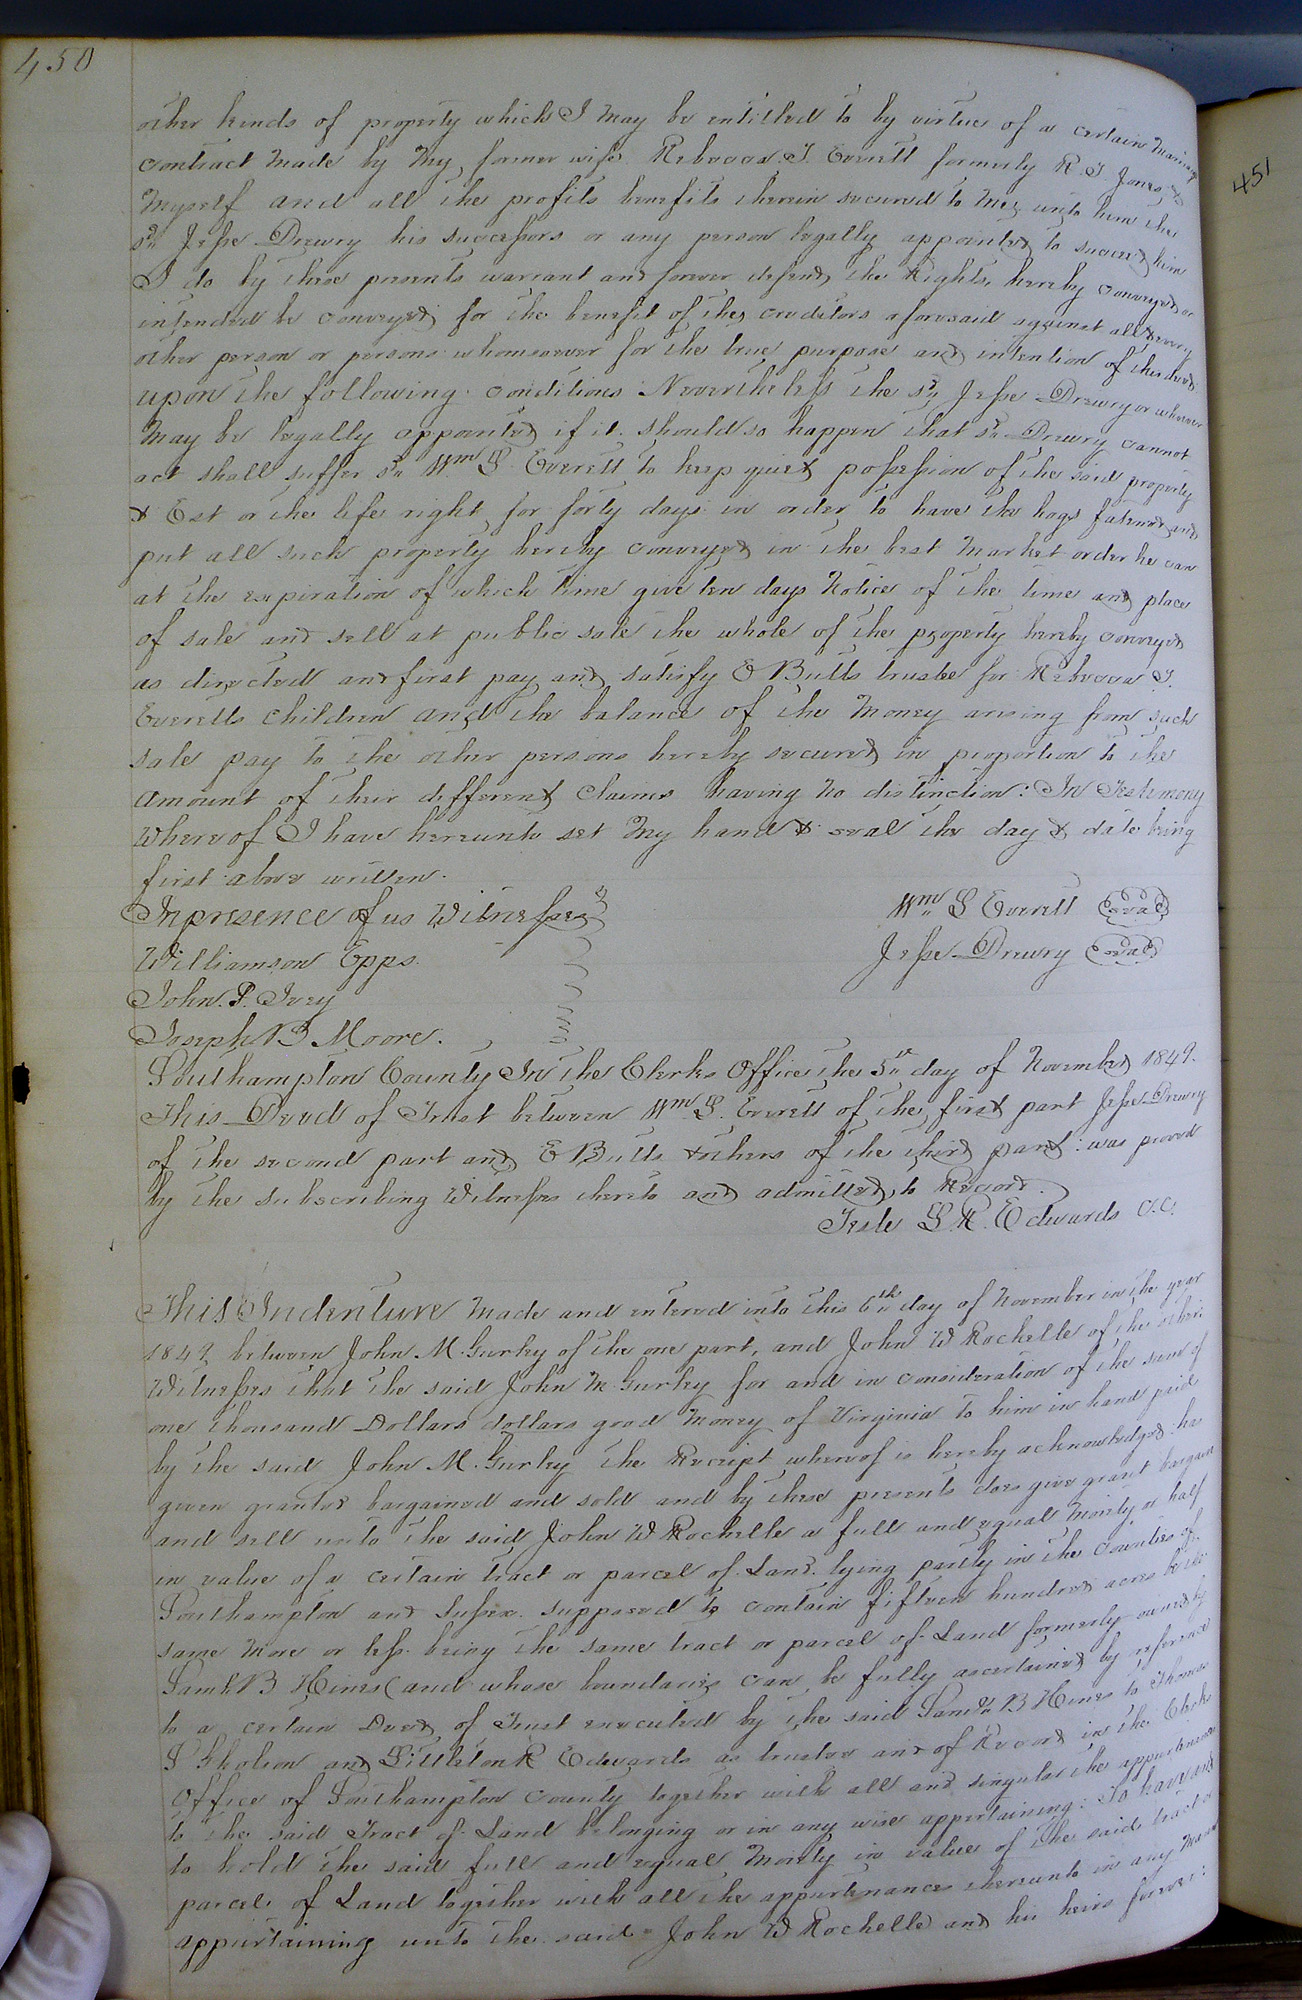 450
other kinds of property which I may be entitled to by virtue of a certain Marriage
contract made by my former wife Rebecca T. Everett formerly R. T Jones &
Myself and all the profits benefits therein secured to me, unto him the
sd Jesse Drewry his successors or any person legally appointed to succeed him
I do by these presents warrant and forever defend, the Rights, hereby conveyed or
intended be conveyed for the benefit of the creditors aforesaid against all & every
other person or persons whomsoever for the true purpose and intention of this deed
upon the following conditions Nevertheless the sd Jesse Drewry or whoever
may be legally appointed if it should so happen that sd Drewry cannot
act shall suffer sd Wm S. Everett to keep quiet possession of the said property
& Est or the life right for forty days in order to have the hogs fatened and
put all such property hereby conveyed in the best market order he can
at the expiration of which time give ten days Notice of the time and place
of sale and sell at public sale the whole of the property hereby conveyed
as directed and first pay and satisfy E Butts trustee for Rebecca T.
Everetts children and the balance of the money arising from such
sale pay to the other persons hereby secured in proportion to the
amount of their different claims having no distinction: In Testimony
whereof I have hereunto set my hand & seal the day & date being
first above written.
In presence of us Witnesses
Wm S Everett Seal
Williamson Epps.
Jesse Drewry Seal
John. P. Ivey
Joseph B Moore.
Southampton County In the Clerks Office the 5th day of November 1849.
This Deed of Trust between Wm S. Everett of the first part Jesse Drewry
of the second part and E Butts & others of the third part: was proved
by the subscribing Witnesses thereto and admitted to Record.
Teste L R. Edwards C.C.
This Indenture made and entered into this 6th day of November in the year
1849 between John M. Gurley of the one part, and John W Rochelle of the other:
Witnesses that the said John M Gurley for and in consideration of the sum of
one thousand Dollars dollars good money of Virginia to him in hand paid
by the said John M. Gurley the Receipt whereof is hereby acknowledged: has
given granted bargained and sold and by these presents does give grant bargain
and sell unto the said John W Rochelle a full and equal moiety or half
in value of a certain tract or parcel of Land lying partly in the counties of
Southampton and Sussex. supposed to contain fifteen hundred acres be the
same more or less. being the same tract or parcel of Land formerly owned by
Saml B Hines (and whose boundaries can be fully ascertained by reference
to a certain Deed of Trust executed by the said Saml B Hines to Thomas
S Gholson and Littleton R Edwards as trustee and of Record in the Clerks
Office of Southampton County together with all and singular the appurtenances
to the said Tract of Land belonging or in any wise appertaining: To have and
to hold the said full and equal moiety in value of the said tract or
parcel of Land together with all the appurtenances thereunto in any manner
appurtaining unto the said John W Rochelle and his heirs forever:
451